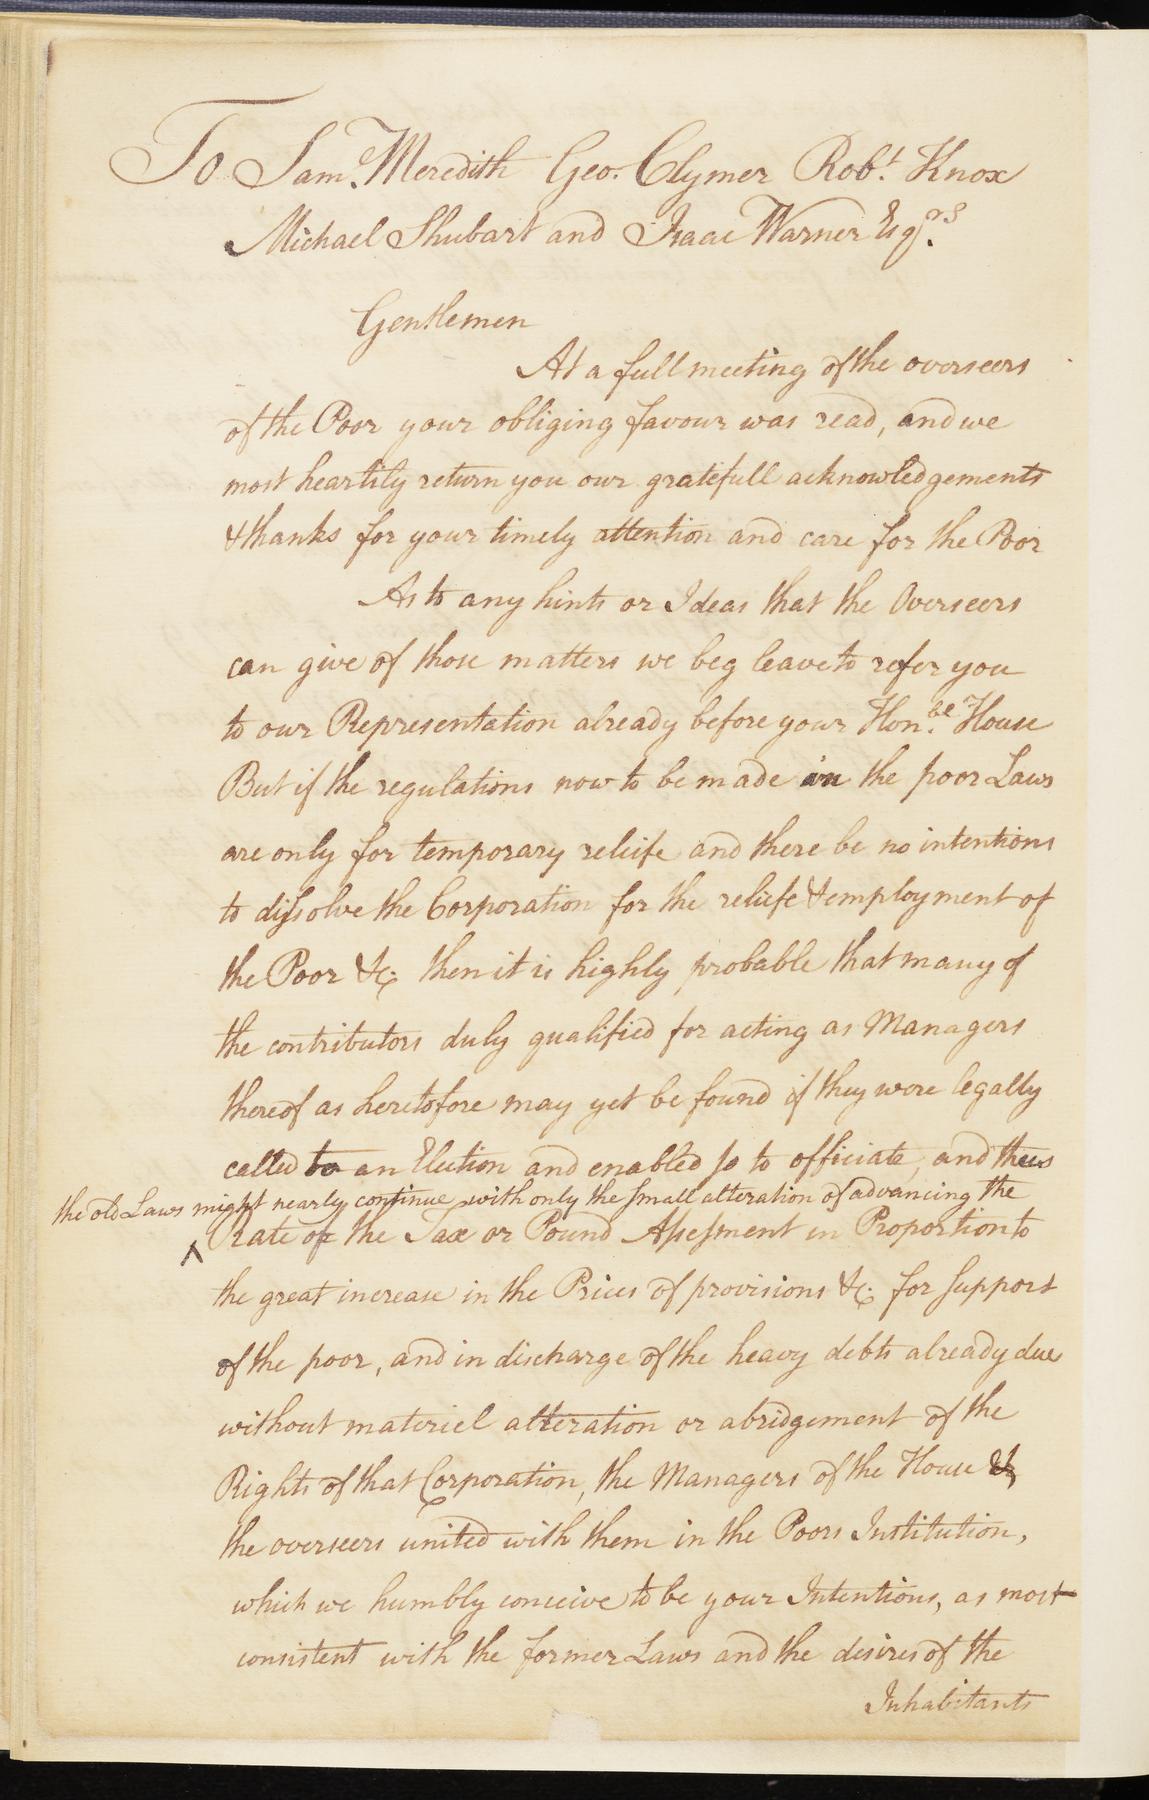 To Sam.l Meredith Geo. Clymer Rob.t Knox
Michael Shubart and Isaac Warner Esq.rs
Gentlemen
At a full meeting of the overseers
of the Poor your obliging favour was read, and we
most heartily return you our gratefull acknowledgements
& thanks for your timely attention and care for the Poor
As to any hints or Ideas that the Overseers
can give of those matters we beg leave to refer you
to our Representation already before your Hon.ble House
But if the regulations now to be made in the poor Laws
are only for temporary reliefe and there be no intentions
to dissolve the Corporation for the reliefe & employment of
the Poor &c. then it is highly probable that many of
the contributors duly qualified for acting as Managers
thereof as heretofore may yet be found if they were legally
called to an Election and enabled so to officiate, and thus
the old Laws might nearly continue with only the small alteration of advancing the
^ Rate of the Tax or Pound Assessment in Proportion to
the great increase in the Prices of provisions &c. for support
of the poor, and in discharge of the heavy debts already due
without materiel alteration or abridgement of the
Rights of that Corporation, the Managers of the House &
the overseers united with them in the Poors Institution,
which we humbly conceive to be your Intentions, as most
consistent with the former Laws and the desires of the
Inhabitants